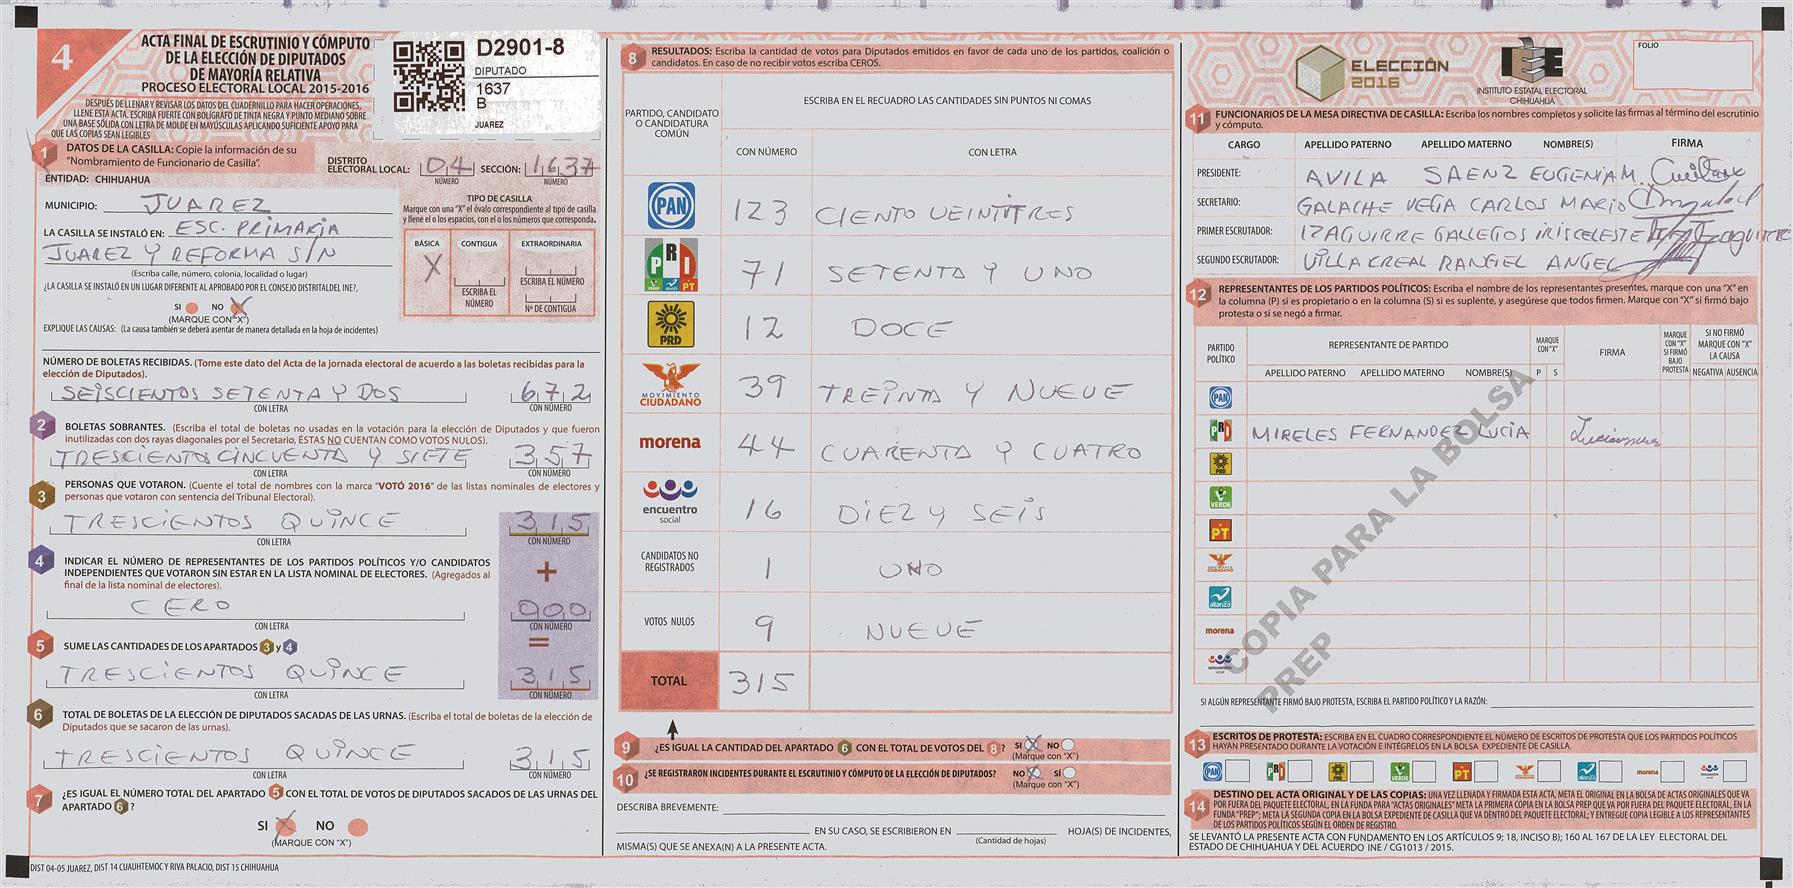 4
ACTA FINAL DE ESCRUTINIO Y CÓMPUTO
DE LA ELECCIÓN DE DIPUTADOS
DE MAYORÍA RELATIVA
PROCESO ELECTORAL LOCAL 2015-2016
DESPUÉS DE LLENAR Y REVISAR LOS DATOS DEL CUADERNILLO PARA HACER OPERACIONES,
LLENE ESTA ACTA. ESCRIBA FUERTE CON BOLÍGRAFO DE TINTA NEGRA Y PUNTO MEDIANO SOBRE
UNA BASE SÓLIDA CON LETRA DE MOLDE EN MAYÚSCULAS APLICANDO SUFICIENTE APOYO PARA
QUE LAS COPIAS SEAN LEGIBLES
D2901-8
DIPUTADO
1637
B
JUAREZ
1 DATOS DE LA CASILLA: Copie la información de su
"Nombramiento de Funcionario de Casilla".
DISTRITO ELECTORAL LOCAL: 04 NÚMERO SECCIÓN: 1637 NÚMERO
ENTIDAD: CHIHUAHUA
MUNICIPIO: JUAREZ
LA CASILLA SE INSTALÓ EN: ESC. PRIMARIA
JUAREZ Y REFORMA S/N
(Escriba calle, número, colonia, localidad o lugar)
¿LA CASILLA SE INSTALÓ EN UN LUGAR DIFERENTE AL APROBADO POR EL CONSEJO DISTRITAL DEL INE?,
SI NO X
(MARQUE CON "X")
EXPLIQUE LAS CAUSAS: (La causa también se deberá asentar de manera detallada en la hoja de incidentes)
TIPO DE CASILLA
Marque con una "X" el óvalo correspondiente al tipo de casilla
y llene el o los espacios, con el o los números que corresponda.
BÁSICA CONTIGUA EXTRAORDINARIA
X
ESCRIBA EL NÚMERO
ESCRIBA EL NÚMERO
Nº DE CONTIGUA
NÚMERO DE BOLETAS RECIBIDAS. (Tome este dato del Acta de la jornada electoral de acuerdo a las boletas recibidas para la
elección de Diputados).
SEISCIENTOS SETENTA Y DOS 672
CON LETRA CON NÚMERO
2 BOLETAS SOBRANTES. (Escriba el total de boletas no usadas en la votación para la elección de Diputados y que fueron
inutilizadas con dos rayas diagonales por el Secretario, ÉSTAS NO CUENTAN COMO VOTOS NULOS).
TRESCIENTO CINCUENTA Y SIETE 357
CON LETRA CON NÚMERO
3 PERSONAS QUE VOTARON. (Cuente el total de nombres con la marca "VOTÓ 2016" de las listas nominales de electores y
personas que votaron con sentencia del Tribunal Electoral).
TRESCIENTOS QUINCE 315
CON LETRA CON NÚMERO
+
4 INDICAR EL NÚMERO DE REPRESENTANTES DE LOS PARTIDOS POLÍTICOS Y/O CANDIDATOS
INDEPENDIENTES QUE VOTARON SIN ESTAR EN LA LISTA NOMINAL DE ELECTORES. (Agregados al
final de la lista nominal de electores).
CERO 000
CON LETRA CON NÚMERO
=
5 SUME LAS CANTIDADES DE LOS APARTADOS 3 y 4
TRESCIENTOS QUINCE 315
CON LETRA CON NÚMERO
6 TOTAL DE BOLETAS DE LA ELECCIÓN DE DIPUTADOS SACADAS DE LAS URNAS. (Escriba el total de boletas de la elección de
Diputados que se sacaron de las urnas).
TRESCIENTOS QUINCE 315
CON LETRA CON NÚMERO
7 ¿ES IGUAL EL NÚMERO TOTAL DEL APARTADO 5 CON EL TOTAL DE VOTOS DE DIPUTADOS SACADOS DE LAS URNAS DEL
APARTADO 6?
SI X NO
(MARQUE CON "X")
DIST 04-05 JUAREZ, DIST 14 CUAUHTEMOC Y RIVA PALACIO, DIST 15 CHIHUAHUA
8 RESULTADOS: Escriba la cantidad de votos para Diputados emitidos en favor de cada uno de los partidos, coalición o
candidatos. En caso de no recibir votos escriba CEROS.
PARTIDO, CANDIDATO
O CANDIDATURA
COMÚN
ESCRIBA EN EL RECUADRO LAS CANTIDADES SIN PUNTOS NI COMAS
CON NÚMERO CON LETRA
PAN 123 CIENTO VEINTITRES
PRI VERDE alianza PT 71 SETENTA Y UNO
PRD 12 DOCE
MOVIMIENTO CIUDADANO 39 TREINTA Y NUEVE
morena 44 CUARENTA Y CUATRO
encuentro social 16 DIEZ Y SEIS
CANDIDATOS NO REGISTRADOS 1 UNO
VOTOS NULOS 9 NUEVE
TOTAL 315
9 ¿ES IGUAL LA CANTIDAD DEL APARTADO 6 CON EL TOTAL DE VOTOS DEL 8? SI X NO
(Marque con "X")
10 ¿SE REGISTRARON INCIDENTES DURANTE EL ESCRUTINIO Y CÓMPUTO DE LA ELECCIÓN DE DIPUTADOS? NO X SÍ
(Marque con "X")
DESCRIBA BREVEMENTE:
EN SU CASO, SE ESCRIBIERON EN HOJA(S) DE INCIDENTES,
(Cantidad de hojas)
MISMA(S) QUE SE ANEXA(N) A LA PRESENTE ACTA.
ELECCIÓN
2016
IEE
INSTITUTO ESTATAL ELECTORAL
CHIHUAHUA
FOLIO
11 FUNCIONARIOS DE LA MESA DIRECTIVA DE CASILLA: Escriba los nombres completos y solicite las firmas al término del escrutinio
y cómputo.
CARGO APELLIDO PATERNO APELLIDO MATERNO NOMBRE(S) FIRMA
PRESIDENTE: AVILA SAENZ EUGENIA M.
SECRETARIO: GALACHE VEGA CARLOS MARIO
PRIMER ESCRUTADOR: IZAGUIRRE GALLEGOS IRIS CELESTE
SEGUNDO ESCRUTADOR: VILLARREAL RANGEL ANGEL
12 REPRESENTANTES DE LOS PARTIDOS POLÍTICOS: Escriba el nombre de los representantes presentes, marque con una "X" en
la columna (P) si es propietario o en la columna (S) si es suplente, y asegúrese que todos firmen. Marque con "X" si firmó bajo
protesta o si se negó a firmar.
PARTIDO POLÍTICO
REPRESENTANTE DE PARTIDO
APELLIDO PATERNO APELLIDO MATERNO NOMBRE(S)
MARQUE CON "X"
P S
FIRMA
MARQUE CON "X" SI FIRMÓ BAJO PROTESTA
SI NO FIRMÓ MARQUE CON "X" LA CAUSA
NEGATIVA AUSENCIA
PAN
PRI MIRELES FERNANDEZ LUCIA
PRD
VERDE
PT
MOVIMIENTO CIUDADANO
alianza
morena
encuentro social
COPIA PARA LA BOLSA
PREP
SI ALGÚN REPRESENTANTE FIRMÓ BAJO PROTESTA, ESCRIBA EL PARTIDO POLÍTICO Y LA RAZÓN:
13 ESCRITOS DE PROTESTA: ESCRIBA EN EL CUADRO CORRESPONDIENTE EL NÚMERO DE ESCRITOS DE PROTESTA QUE LOS PARTIDOS POLÍTICOS
HAYAN PRESENTADO DURANTE LA VOTACIÓN E INTÉGRELOS EN LA BOLSA EXPEDIENTE DE CASILLA.
PAN PRI PRD VERDE PT alianza morena
14 DESTINO DEL ACTA ORIGINAL Y DE LAS COPIAS: UNA VEZ LLENADA Y FIRMADA ESTA ACTA, META EL ORIGINAL EN LA BOLSA DE ACTAS ORIGINALES QUE VA
POR FUERA DEL PAQUETE ELECTORAL, EN LA FUNDA PARA "ACTAS ORIGINALES" META LA PRIMERA COPIA EN LA BOLSA PREP QUE VA POR FUERA DEL PAQUETE ELECTORAL, EN LA
FUNDA "PREP"; META LA SEGUNDA COPIA EN LA BOLSA EXPEDIENTE DE CASILLA QUE VA DENTRO DEL PAQUETE ELECTORAL; Y ENTREGUE COPIA LEGIBLE A LOS REPRESENTANTES
DE LOS PARTIDOS POLÍTICOS SEGÚN EL ORDEN DE REGISTRO.
SE LEVANTÓ LA PRESENTE ACTA CON FUNDAMENTO EN LOS ARTÍCULOS 9; 18, INCISO B); 160 AL 167 DE LA LEY ELECTORAL DEL
ESTADO DE CHIHUAHUA Y DEL ACUERDO INE / CG1013 / 2015.